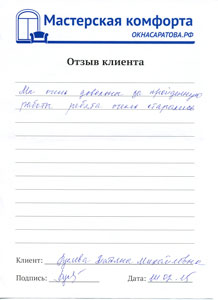 Мастерская комфорта
ОКНАСАРАТОВА.РФ
Отзыв клиента
Мы очень довольны за
работы ребята очень старались
Клиент: Наталья Михайловна
Подпись: Дата: